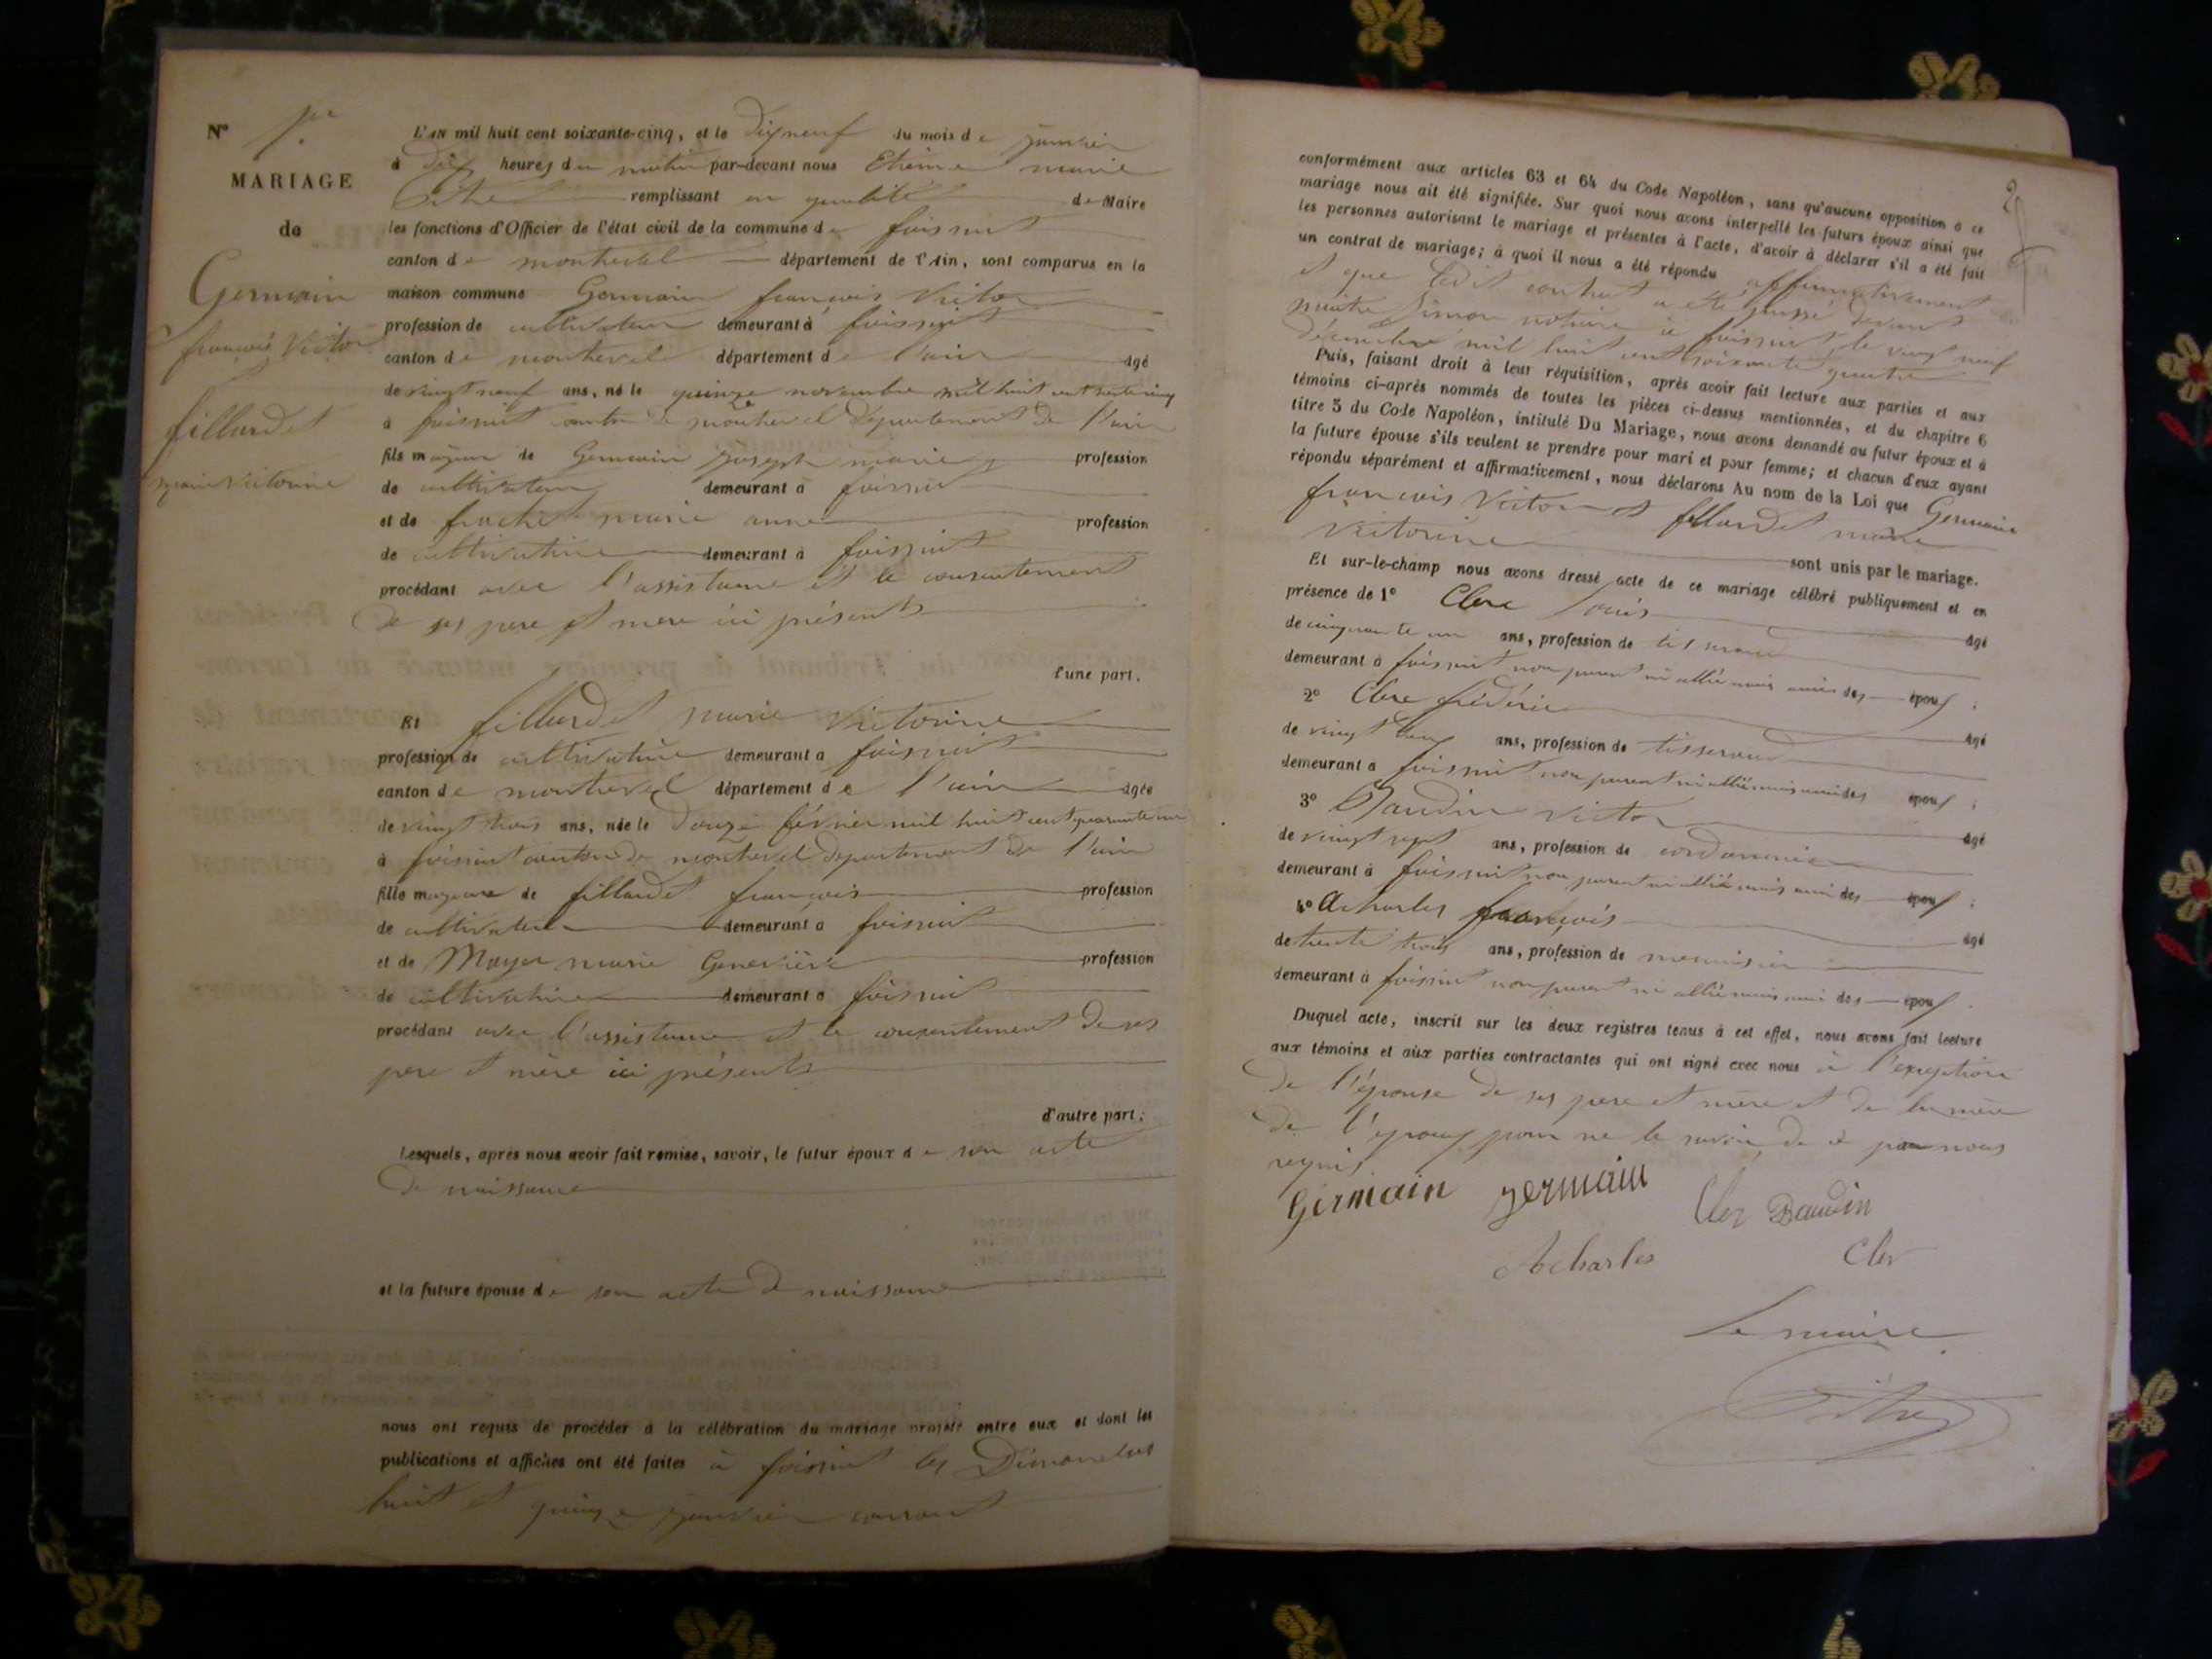 N° 1er
MARIAGE
de
Germain
françois Victor
fillardet
marie victorine
L'AN mil huit cent soixante-cinq, et le Dix neuf du mois de janvier
à dix heures du matin par-devant nous Etienne marie
remplissant en qualité de Maire
les fonctions d'Officier de l'état civil de la commune de foissiat
canton de montrevel département de l'Ain, sont comparus en la
maison commune Germain françois Victor
profession de cultivateur demeurant à foissiat
canton de montrevel département de l'ain âgé
de vingt neuf ans, né le quinze novembre mil huit cent trente cinq
à foissiat canton de montrevel département de l'ain
fils majeur de Germain joseph marie profession
de cultivateur demeurant à foissiat
et de marie anne profession
de cultivatrice demeurant à foissiat
procédant avec l'assistance et le consentement
de ses père et mère ici présents
d'une part.
Et fillardet marie victorine
profession de cultivatrice demeurant à foissiat
canton de montrevel département de l'ain âgée
de vingt trois ans, née le Douze février mil huit cent quarante un
à foissiat canton de montrevel département de l'ain
fille majeure de fillardet françois profession
de cultivateur demeurant à foissiat
et de Moyer marie Geneviève profession
de cultivatrice demeurant à foissiat
procédant avec l'assistance et le consentement de ses
père et mère ici présents
d'autre part.
Lesquels, après nous avoir fait remise, savoir, le futur époux de son acte
de naissance
et la future épouse de son acte de naissance
nous ont requis de procéder à la célébration du mariage projeté entre eux et dont les
publications et affiches ont été faites à foissiat les Dimanches
huit et quinze janvier courant
2
conformément aux articles 63 et 64 du Code Napoléon, sans qu'aucune opposition à ce
mariage nous ait été signifiée. Sur quoi nous avons interpellé les futurs époux ainsi que
les personnes autorisant le mariage et présentes à l'acte, d'avoir à déclarer s'il a été fait
un contrat de mariage; à quoi il nous a été répondu affirmativement
et que ledit contrat a été passé devant
maitre Simon notaire à foissiat le vingt neuf
décembre mil huit cent soixante quatre
Puis, faisant droit à leur réquisition, après avoir fait lecture aux parties et aux
témoins ci-après nommés de toutes les pièces ci-dessus mentionnées, et du chapitre 6
titre 5 du Code Napoléon, intitulé Du Mariage, nous avons demandé au futur époux et à
la future épouse s'ils veulent se prendre pour mari et pour femme; et chacun d'eux ayant
répondu séparément et affirmativement, nous déclarons Au nom de la Loi que Germain
françois Victor et fillardet marie
victorine sont unis par le mariage.
Et sur-le-champ nous avons dressé acte de ce mariage célébré publiquement et en
présence de 1° Clerc Louis âgé
de cinquante un ans, profession de tisserand
demeurant à foissiat non parent ni allié mais ami des époux ;
2° Clerc frédéric âgé
de vingt deux ans, profession de tisserand
demeurant à foissiat non parent ni allié mais ami des époux ;
3° Baudin Victor âgé
de vingt sept ans, profession de cordonnier
demeurant à foissiat non parent ni allié mais ami des époux ;
4° Acharles françois âgé
de trente trois ans, profession de menuisier
demeurant à foissiat non parent ni allié mais ami des époux.
Duquel acte, inscrit sur les deux registres tenus à cet effet, nous avons fait lecture
aux témoins et aux parties contractantes qui ont signé avec nous à l'exeption
de l'épouse de ses père et mère et de la mère
de l'époux pour ne le savoir de ce par nous
requis.
Germain germain Cler Baudin
Acharles Cler
Le maire